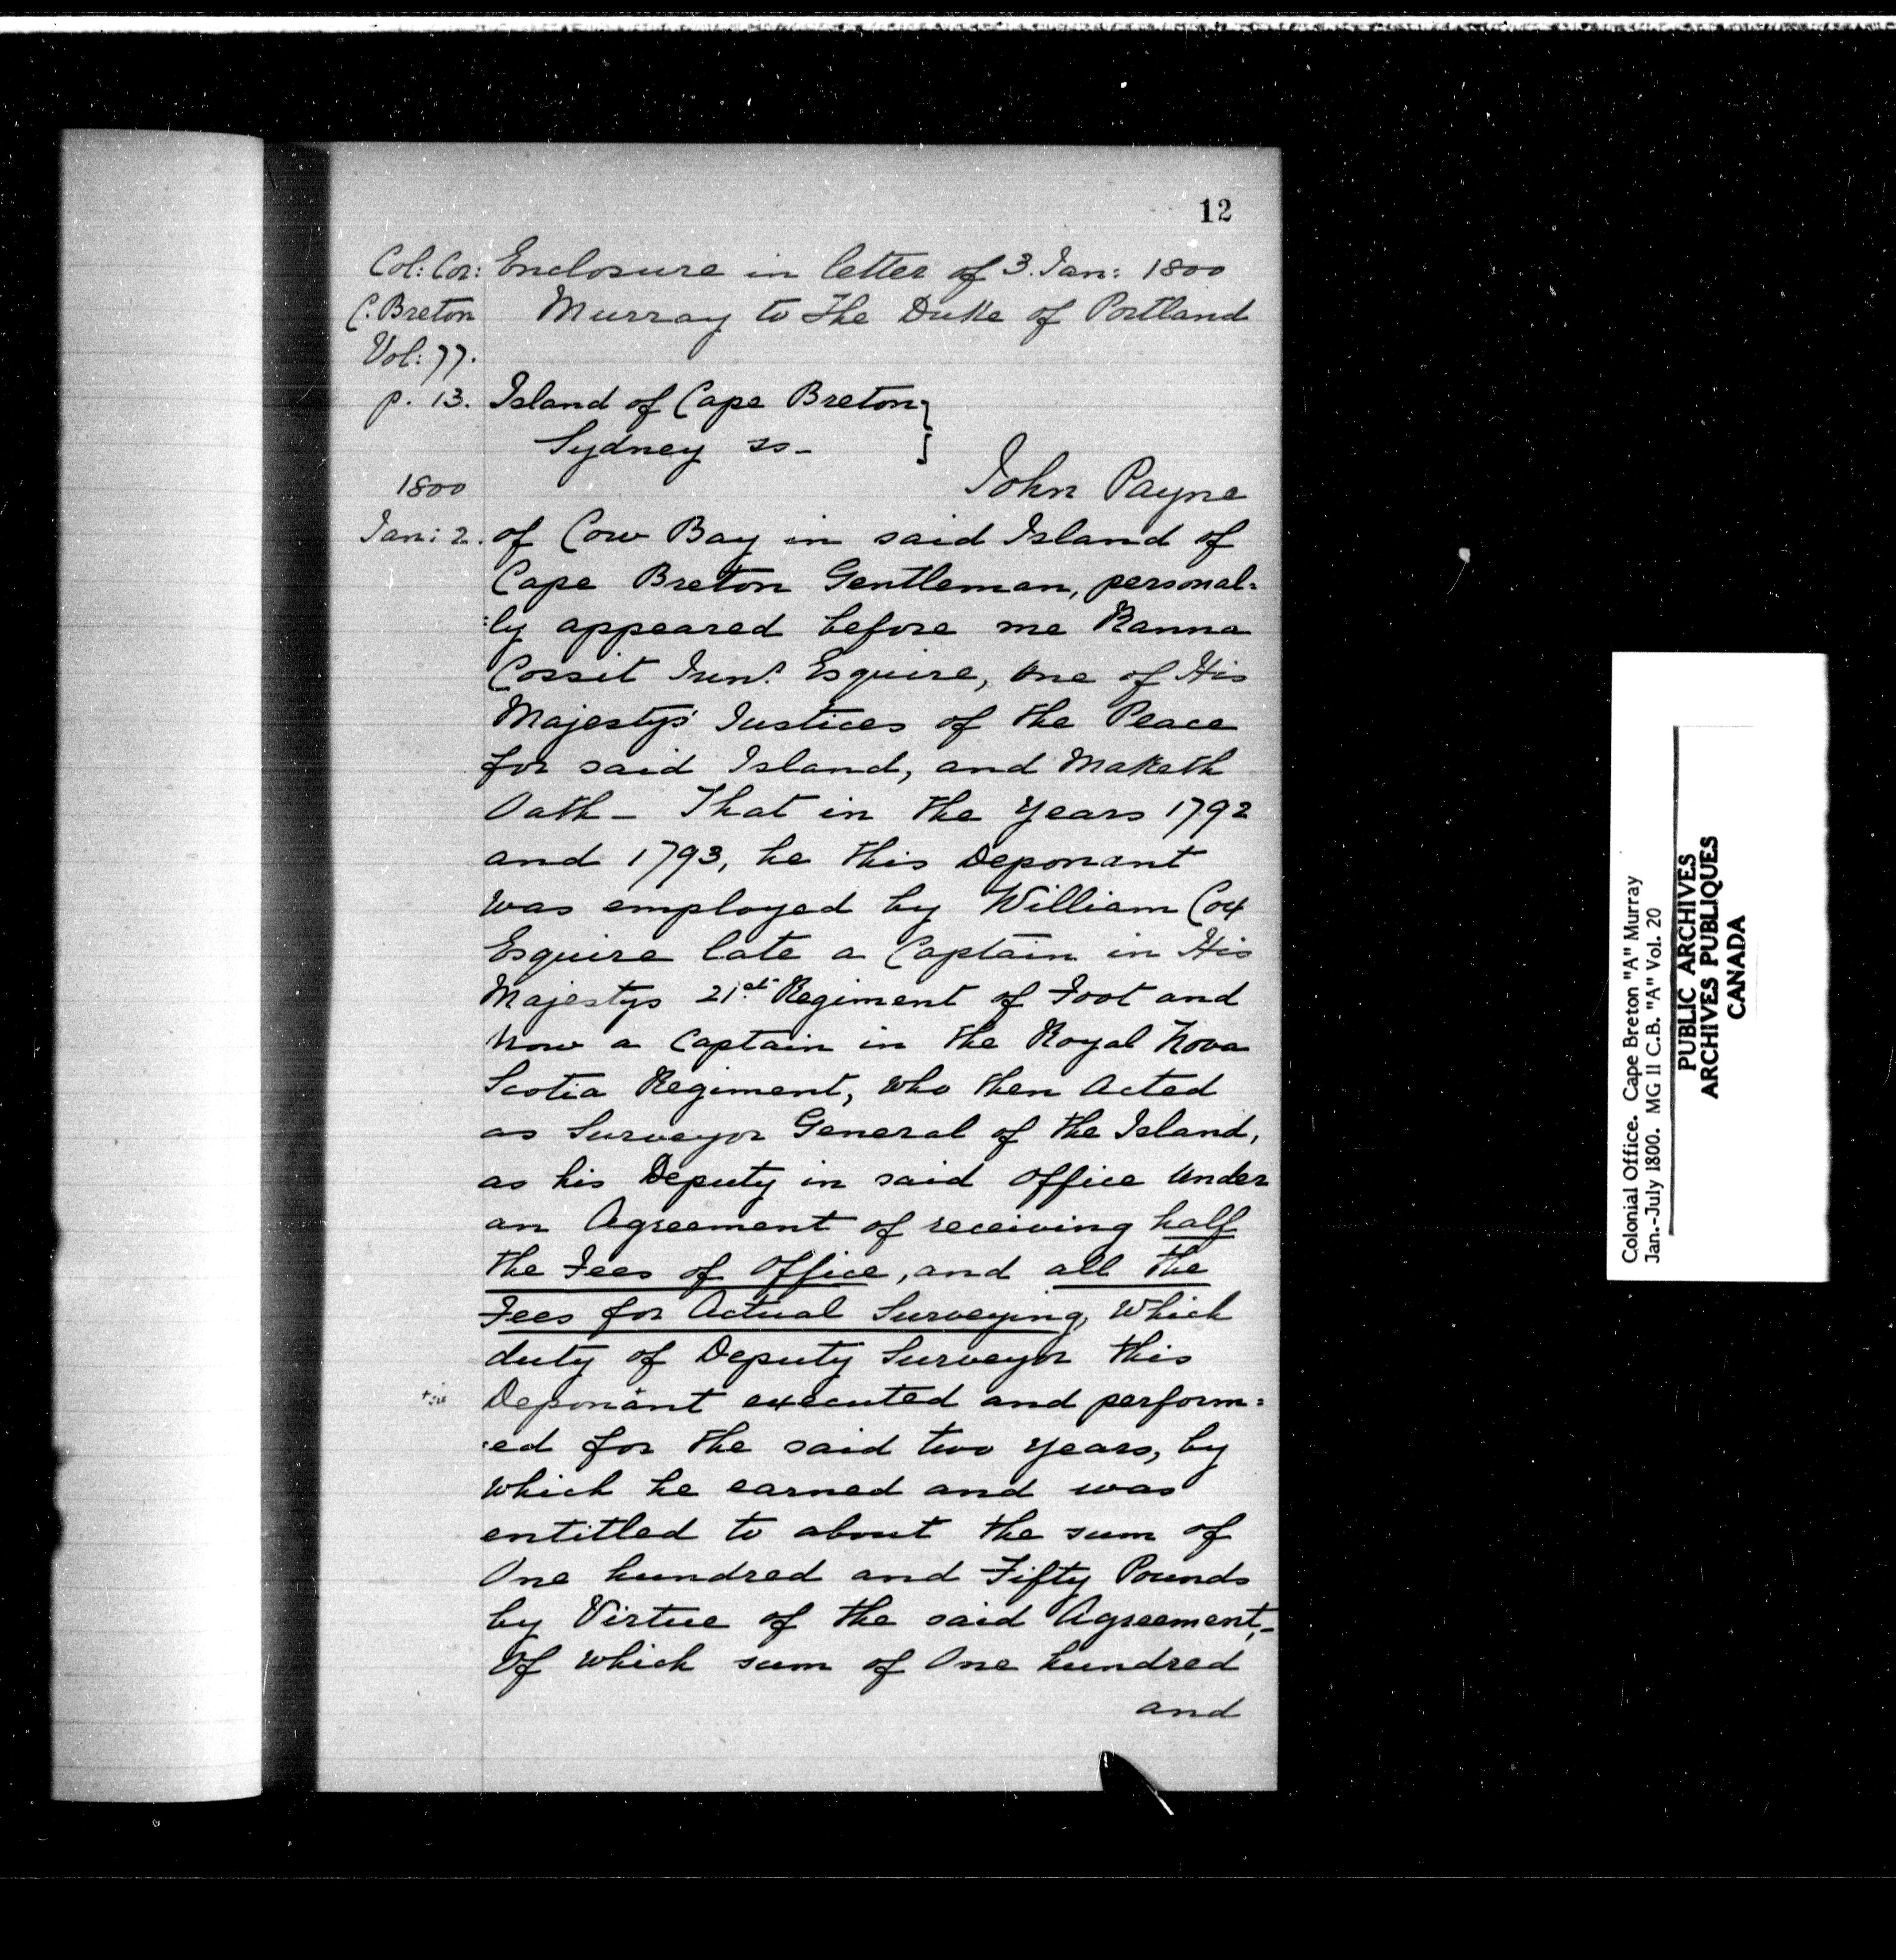 12
Col: Cor: Enclosure in letter of 3. Jan: 1800
C. Breton Murray to the Duke of Portland
Vol: 77.
p. 13. Island of Cape Breton }
Sydney ss-
1800 John Payne
Jan: 2. of Cow Bay in said Island of
Cape Breton Gentleman, personal=
:ly appeared before me Ranna
Cossit Junr. Esquire, One of His
Majestys Justices of the Peace
for said Island, and Maketh
Oath - That in the Years 1792
and 1793, he this Deponant
was employed by William Cox
Esquire late a Captain in His
Majestys 21st Regiment of Foot and
Now a Captain in the Royal Nova
Scotia Regiment, Who then Acted
as Surveyor General of the Island,
as his Deputy in said Office Under
an Agreement of receiving half
the Fees of Office, and all the
Fees for Actual Surveying, Which
duty of Deputy Surveyor this
Deponant executed and perform=
:ed for the said two Years, by
which he earned and was
entitled to about the sum of
One hundred and Fifty Pounds
by Virtue of the said Agreement,-
Of which sum of One hundred
and
Colonial Office. Cape Breton "A" Murray
Jan.-July 1800. MG 11 C.B. "A" Vol. 20
PUBLIC ARCHIVES
ARCHIVES PUBLIQUES
CANADA